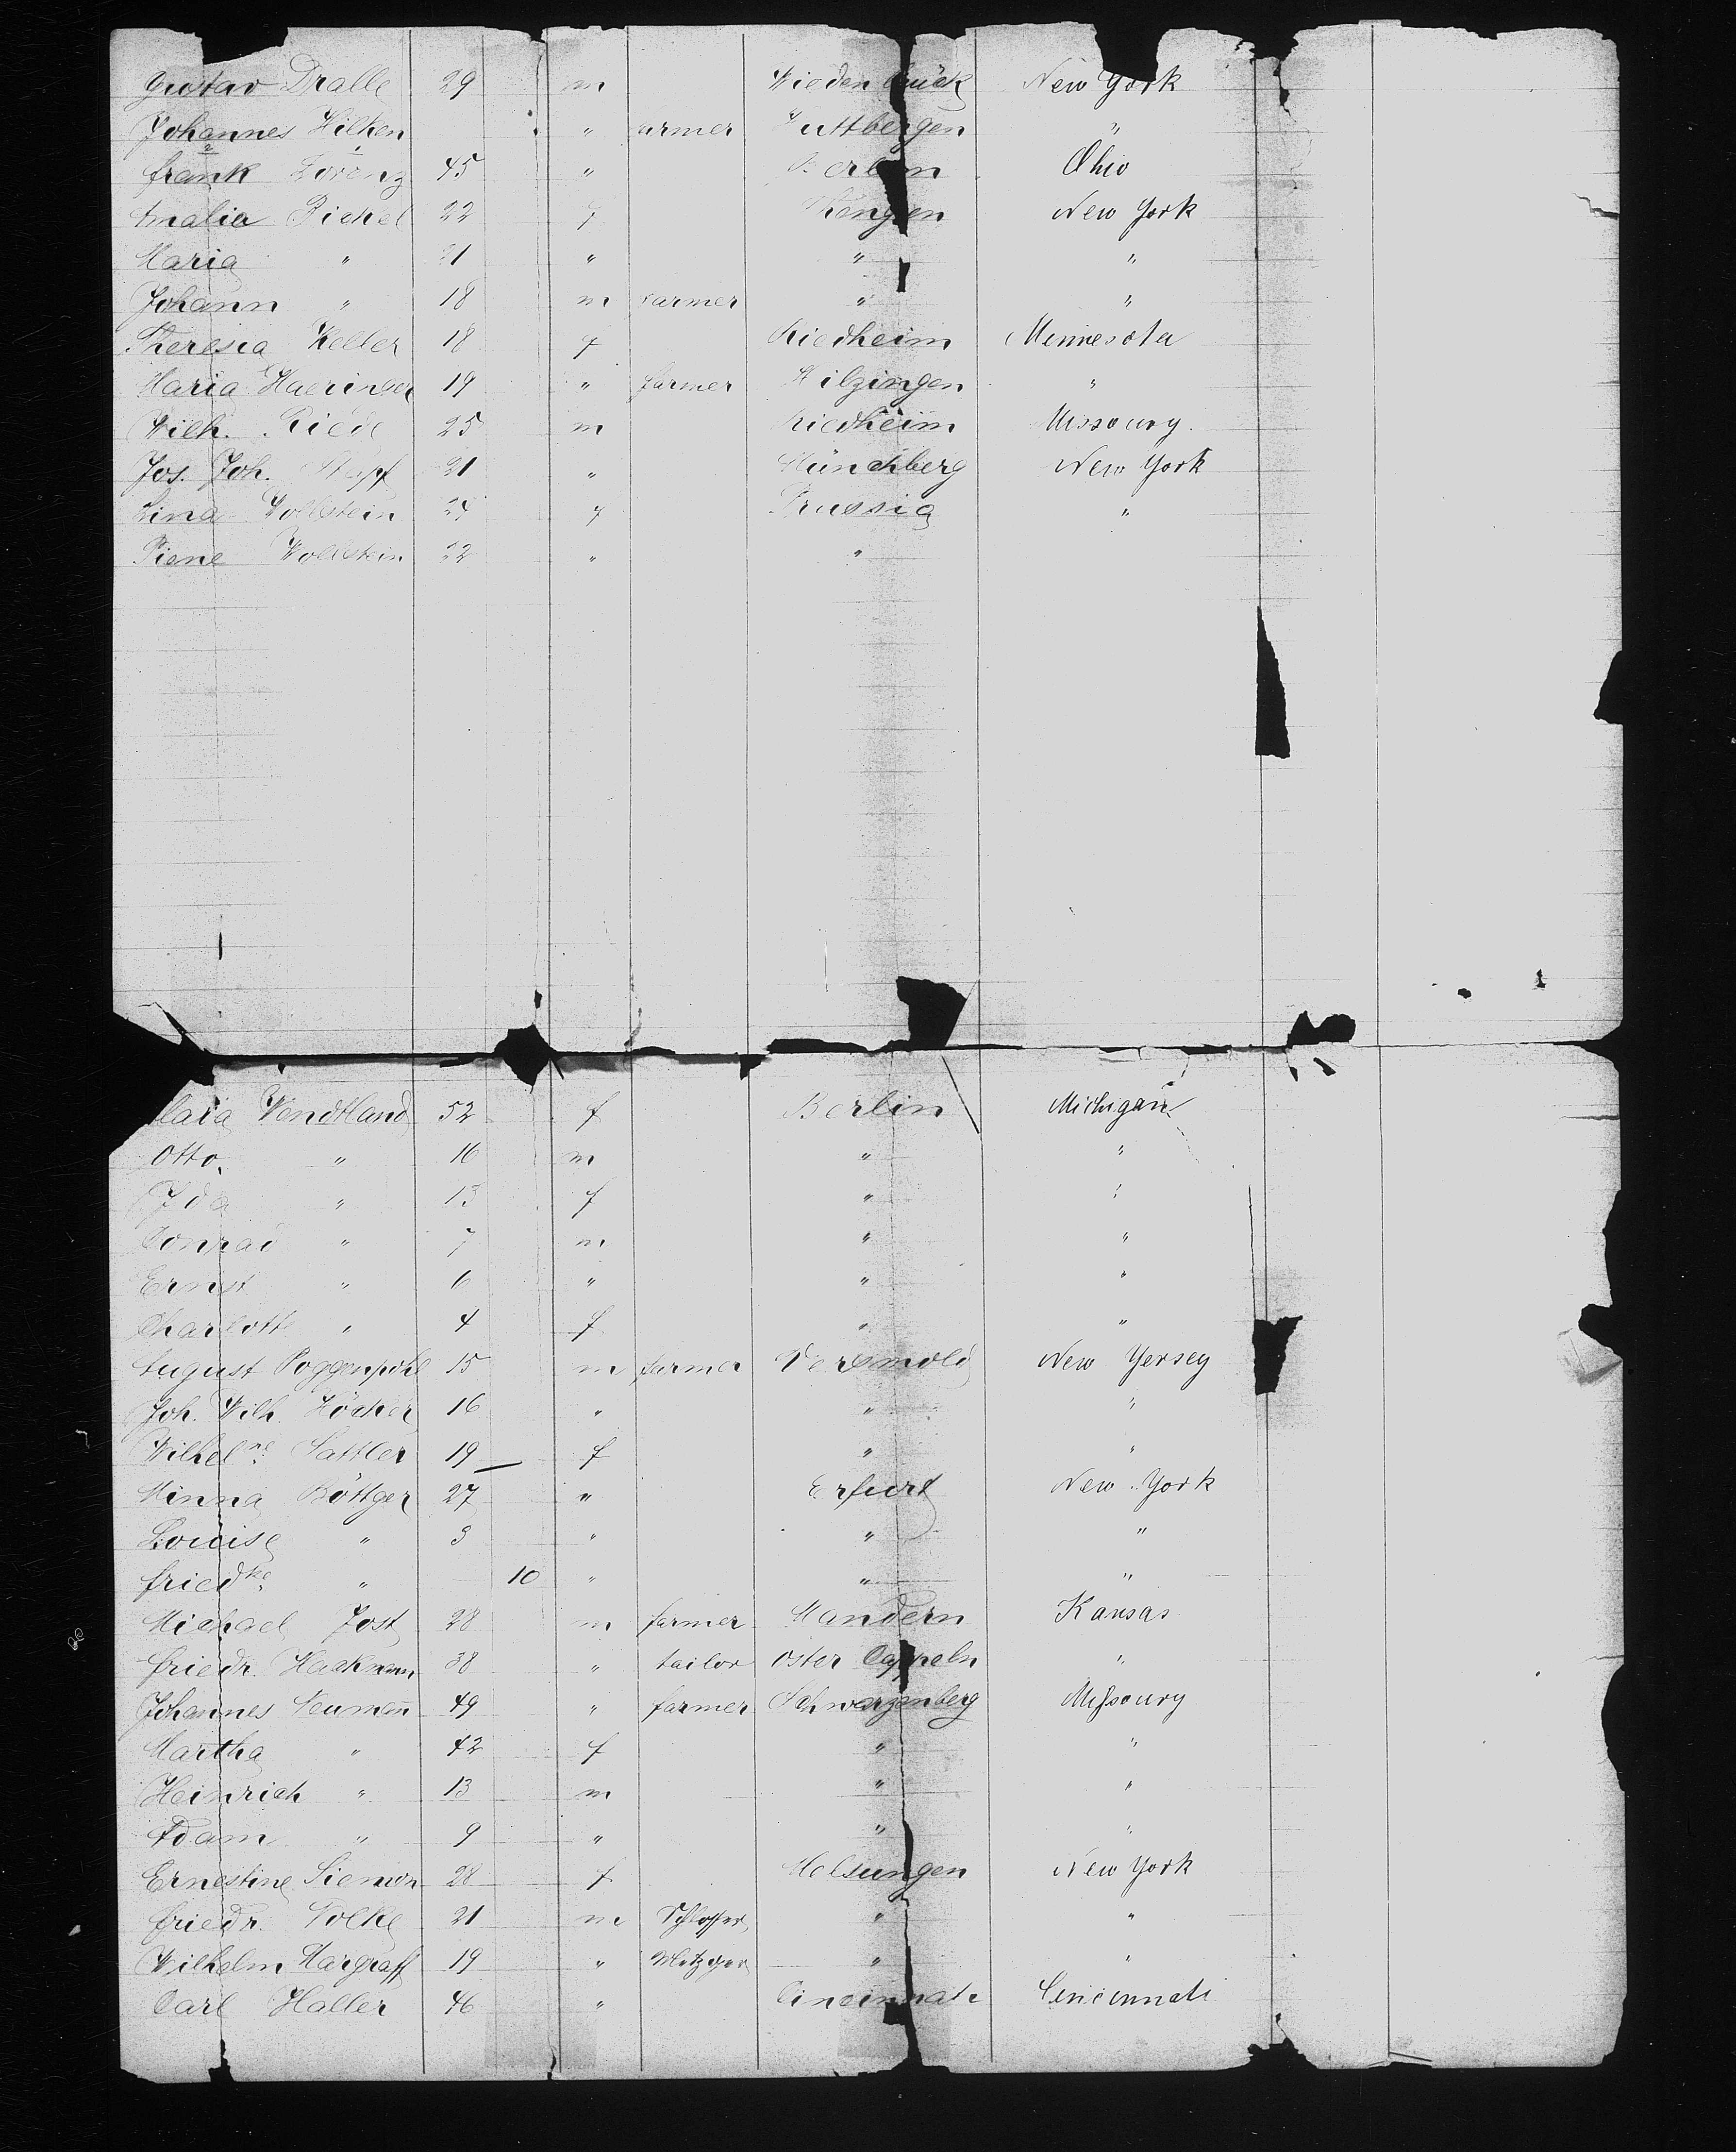 Gustav Dralle 29 m New York
Johannes Hilken " armer "
frank Lorenz 45 " Ohio
Amalia Pickel 22 f New York
Maria " 21 " " "
Johann " 18 m farmer " "
Theresia Keller 18 f Riedheim Minnesota
Maria 19 " farmer Hilzingen "
Wilh. Riede 25 m Riedheim Missoury.
Jos. Joh. 21 " Münchberg New York
Lina Wollstein 24 f Prussia "
Wollstein 22 " "
Wendtland 52 f Berlin Michigan
Otto " 16 m " "
Ida " 13 f " "
Conrad " 7 m " "
Ernst " 6 " " "
Charlotte " 4 f " "
August Poggenpohl 15 m farmer Versmold New Yersey
Joh. Wilh. Höcker 16 " " "
Wilhelne Sattler 19 f " "
Minna Böttger 27 " Erfurt New York
Louise " 3 " " "
friedke " 10 " " "
Michael Jost 28 m farmer Mandern Kansas
friedr. Hackmann 38 " tailor Oster Cappeln "
Johannes Neumann 49 " farmer Schwarzenberg Missoury
Martha " 42 f " "
Heinrich " 13 m " "
Adam " 9 " " "
Ernestine Siemon 28 f Melsungen New York
friedr. Nolke 21 m Schlosser " "
Wilhelm Margraff 19 " Metzger " "
Carl Haller 46 " Cincinnati Cincinnati